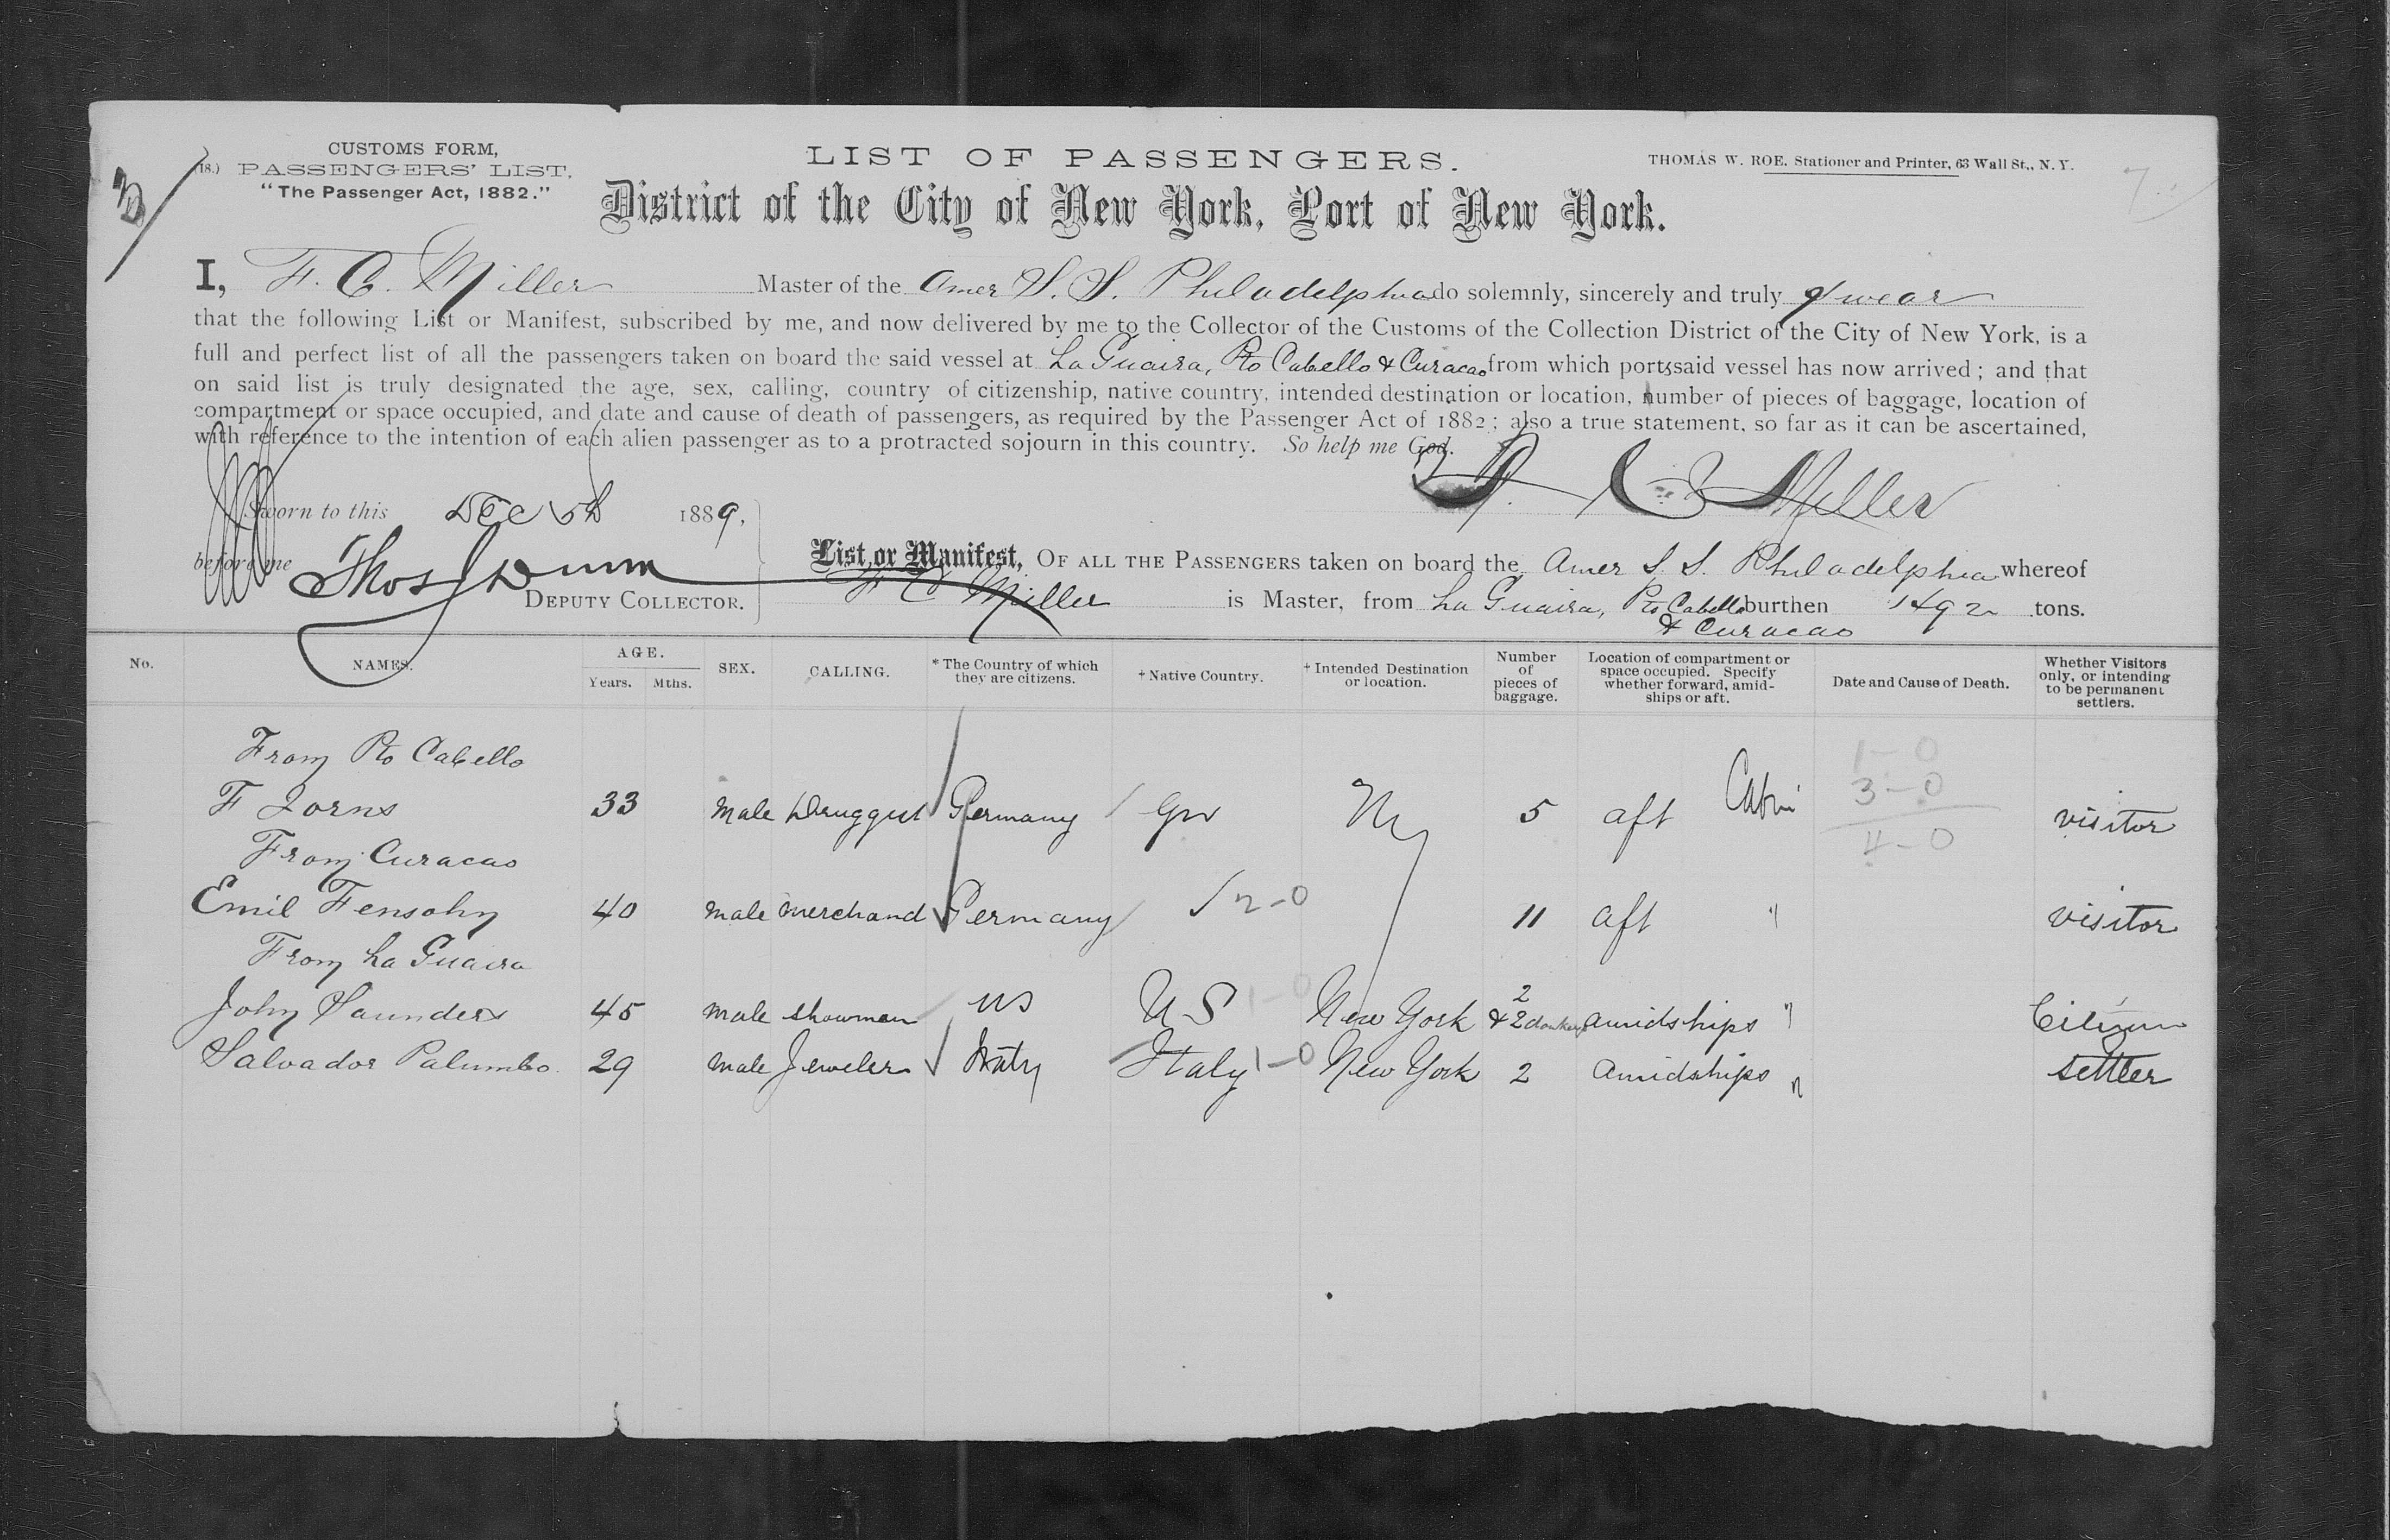 CUSTOMS FORM,
(18.) PASSENGERS' LIST,
"The Passenger Act, 1882."
LIST OF PASSENGERS.
THOMAS W. ROE, Stationer and Printer, 63 Wall St., N. Y.
District of the City of New York, Port of New York.
I, F. C. Miller Master of the Amer S. S. Philadelphia do solemnly, sincerely and truly swear
that the following List or Manifest, subscribed by me, and now delivered by me to the Collector of the Customs of the Collection District of the City of New York, is a
full and perfect list of all the passengers taken on board the said vessel at La Guaira, Pto Cabello & Curacao from which ports said vessel has now arrived; and that
on said list is truly designated the age, sex, calling, country of citizenship, native country, intended destination or location, number of pieces of baggage, location of
compartment or space occupied, and date and cause of death of passengers, as required by the Passenger Act of 1882; also a true statement, so far as it can be ascertained,
with reference to the intention of each alien passenger as to a protracted sojourn in this country. So help me God.
F. C. Miller
Sworn to this Dec 5th 1889,
before me Thos Dunn
DEPUTY COLLECTOR.
List or Manifest, OF ALL THE PASSENGERS taken on board the Amer S. S. Philadelphia whereof
F C Miller is Master, from La Guaira, Pto Cabello burthen 1492 tons.
& Curacao
No. NAMES. AGE. Years. Mths. SEX. CALLING. * The Country of which they are citizens. † Native Country. † Intended Destination or location. Number of pieces of baggage. Location of compartment or space occupied. Specify whether forward, amidships or aft. Date and Cause of Death. Whether Visitors only, or intending to be permanent settlers.
From Pto Cabello 1-0
F Jorns 33 male Druggist Germany Ger Ny 5 aft Cabin 3-0 visitor
From Curacao 4-0
Emil Fensohn 40 male merchand Germany 2-0 11 aft " visitor
From La Guaira
John Saunders 45 male showman US U S 1-0 New York 2 & 2 donkeys amidships " Citizen
Salvador Palumbo 29 male Jeweler Italy Italy 1-0 New York 2 amidships " settler